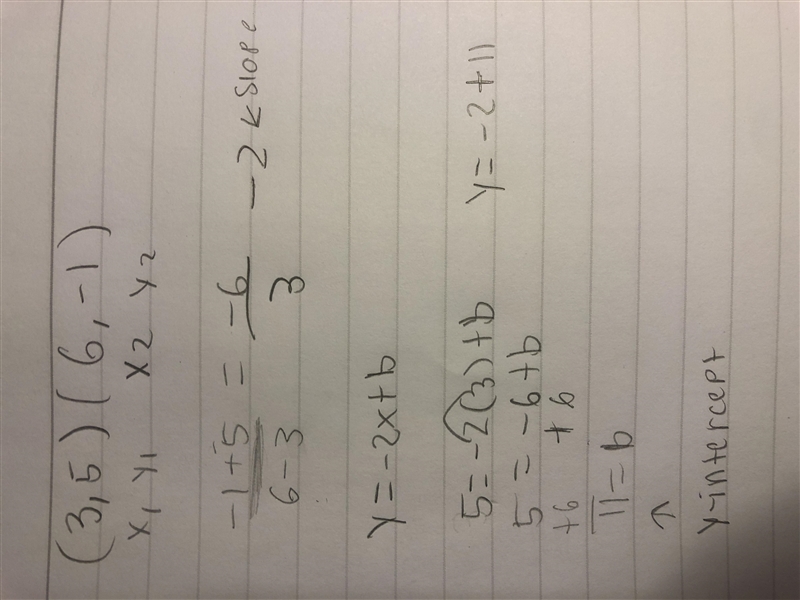 (3,5) (6,-1)
x₁ y₁ x₂ y₂
-1+⁻5 = -6 -2 < slope
6-3 3
y=-2x+b
5=-2(3)+b y=-2+11
5=-6+b
+6 +6
11=b
↑
y-intercept